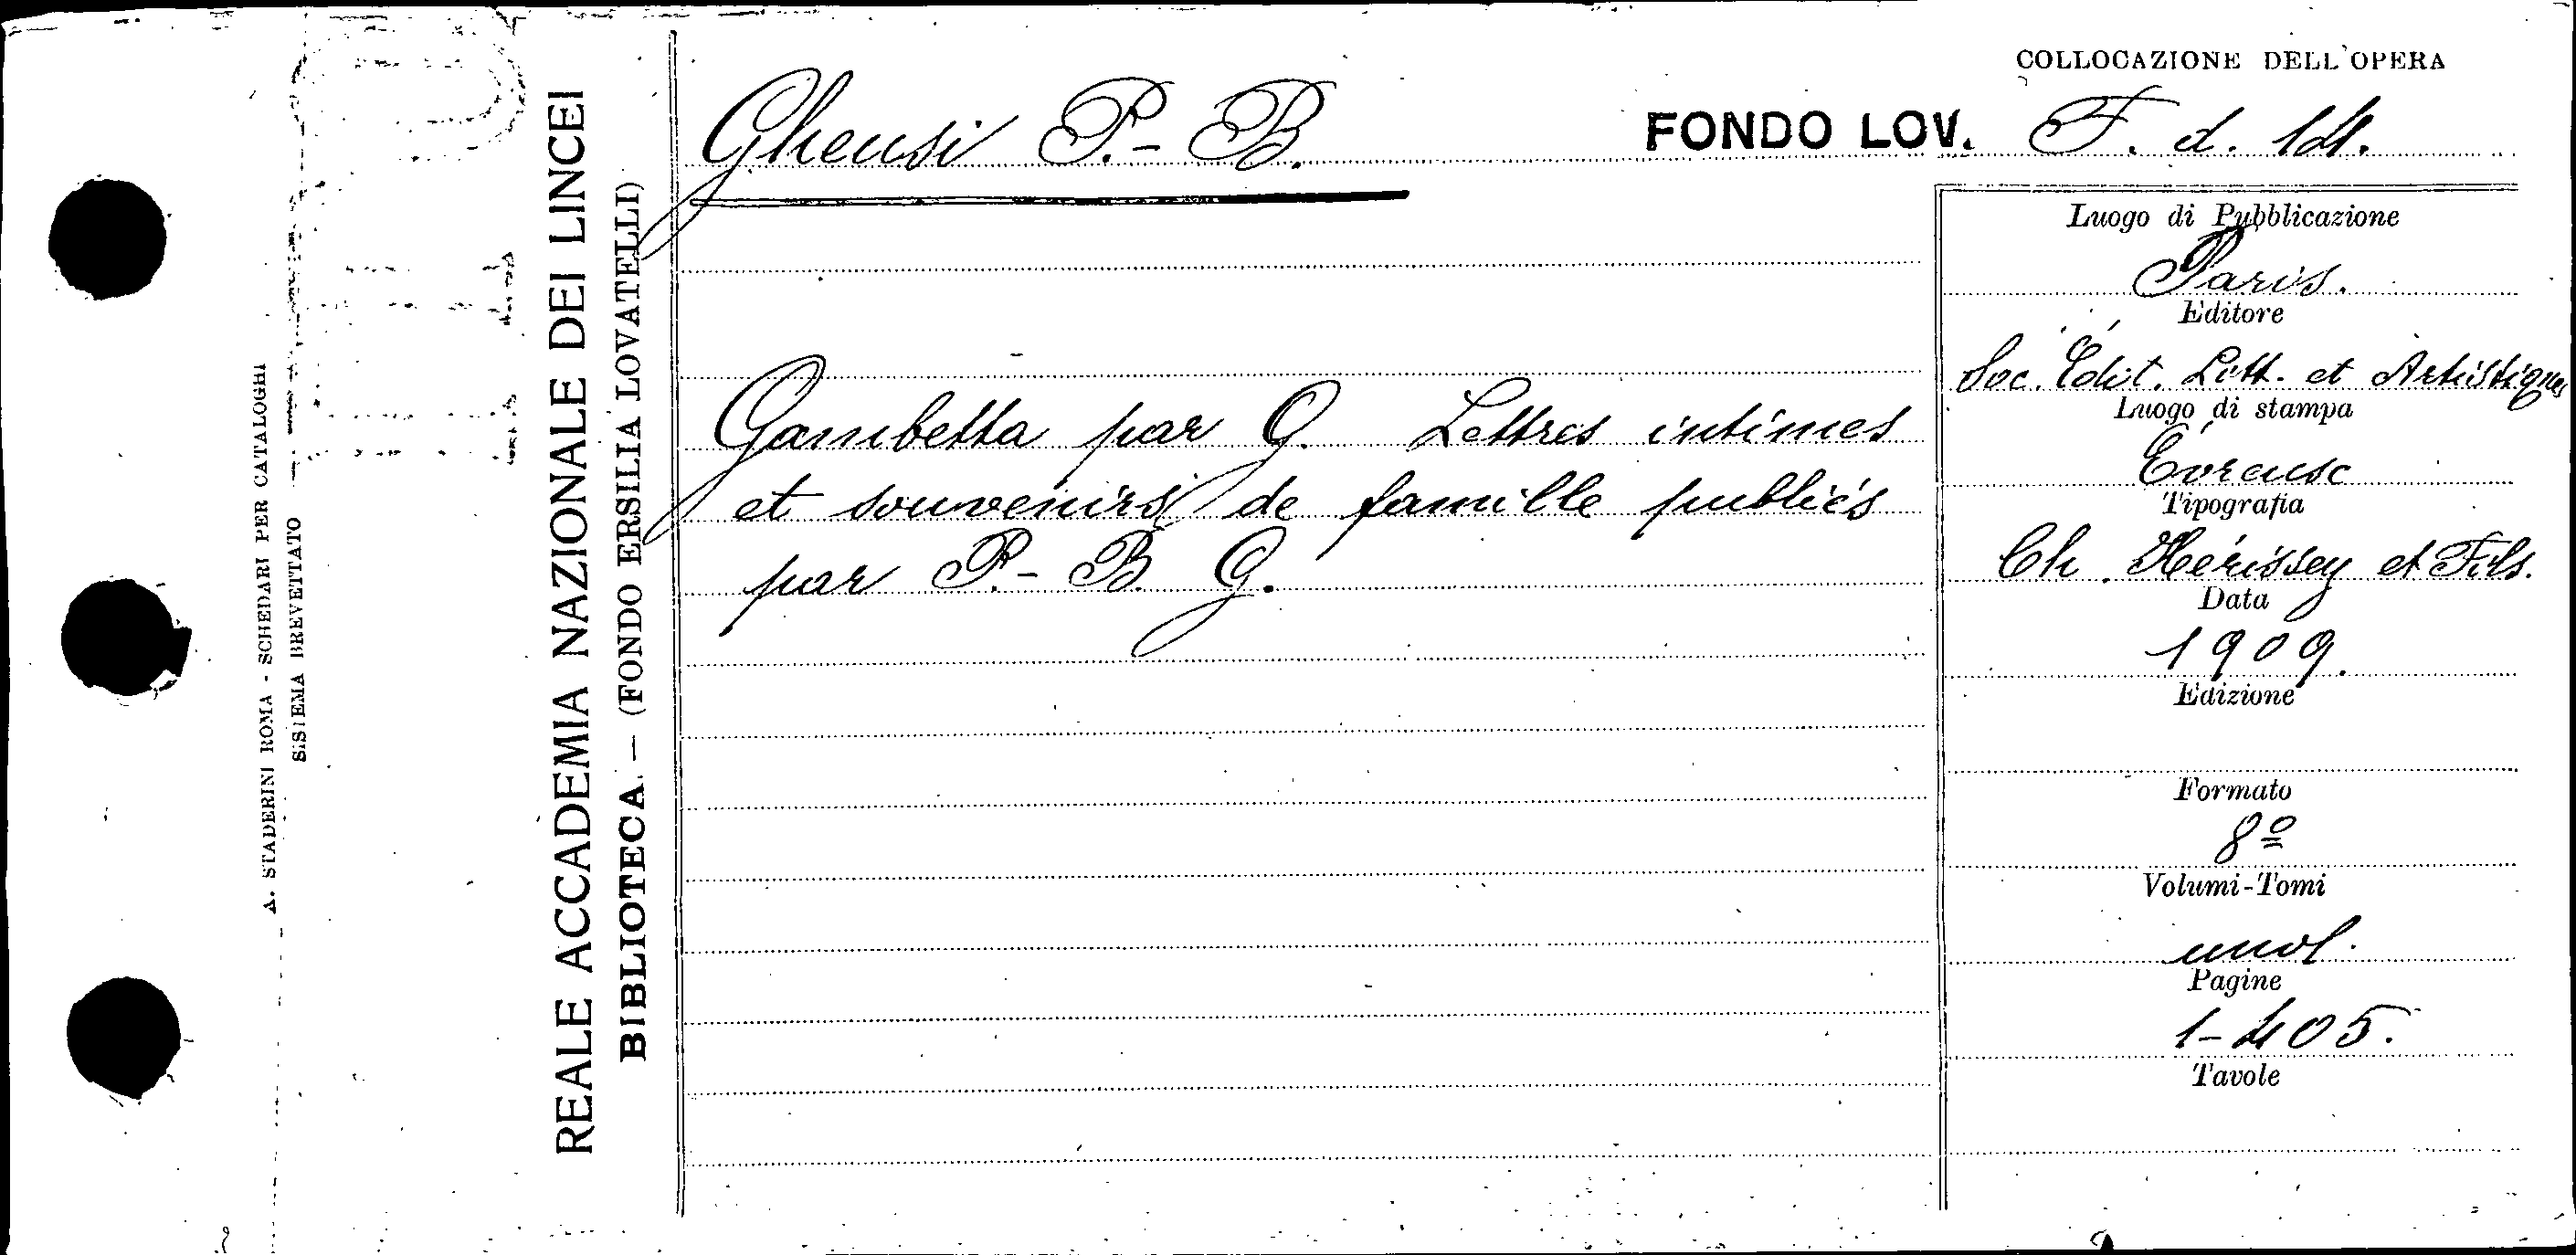 A. STADERINI ROMA - SCHEDARI PER CATALOGHI
SISTEMA BREVETTATO
REALE ACCADEMIA NAZIONALE DEI LINCEI
BIBLIOTECA. — (FONDO ERSILIA LOVATELLI)
COLLOCAZIONE DELL'OPERA
Gheusi P.-B.
FONDO LOV. F. d. 14.
Gambetta par G. Lettres intimes
et souvenirs de famille publiés
par P.-B. G.
Luogo di Pubblicazione
Paris.
Editore
Soc. Édit. Litt. et Artistique
Luogo di stampa
Évreusc
Tipografia
Ch. Hérissey et Fils.
Data
1909.
Edizione
Formato
8º
Volumi-Tomi
unol.
Pagine
1-405.
Tavole